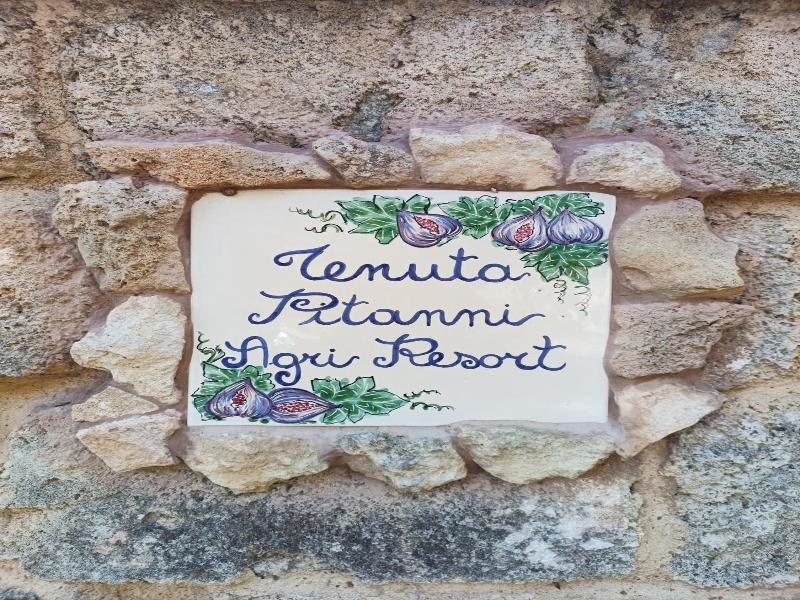 Tenuta
Pitanni
Agri Resort